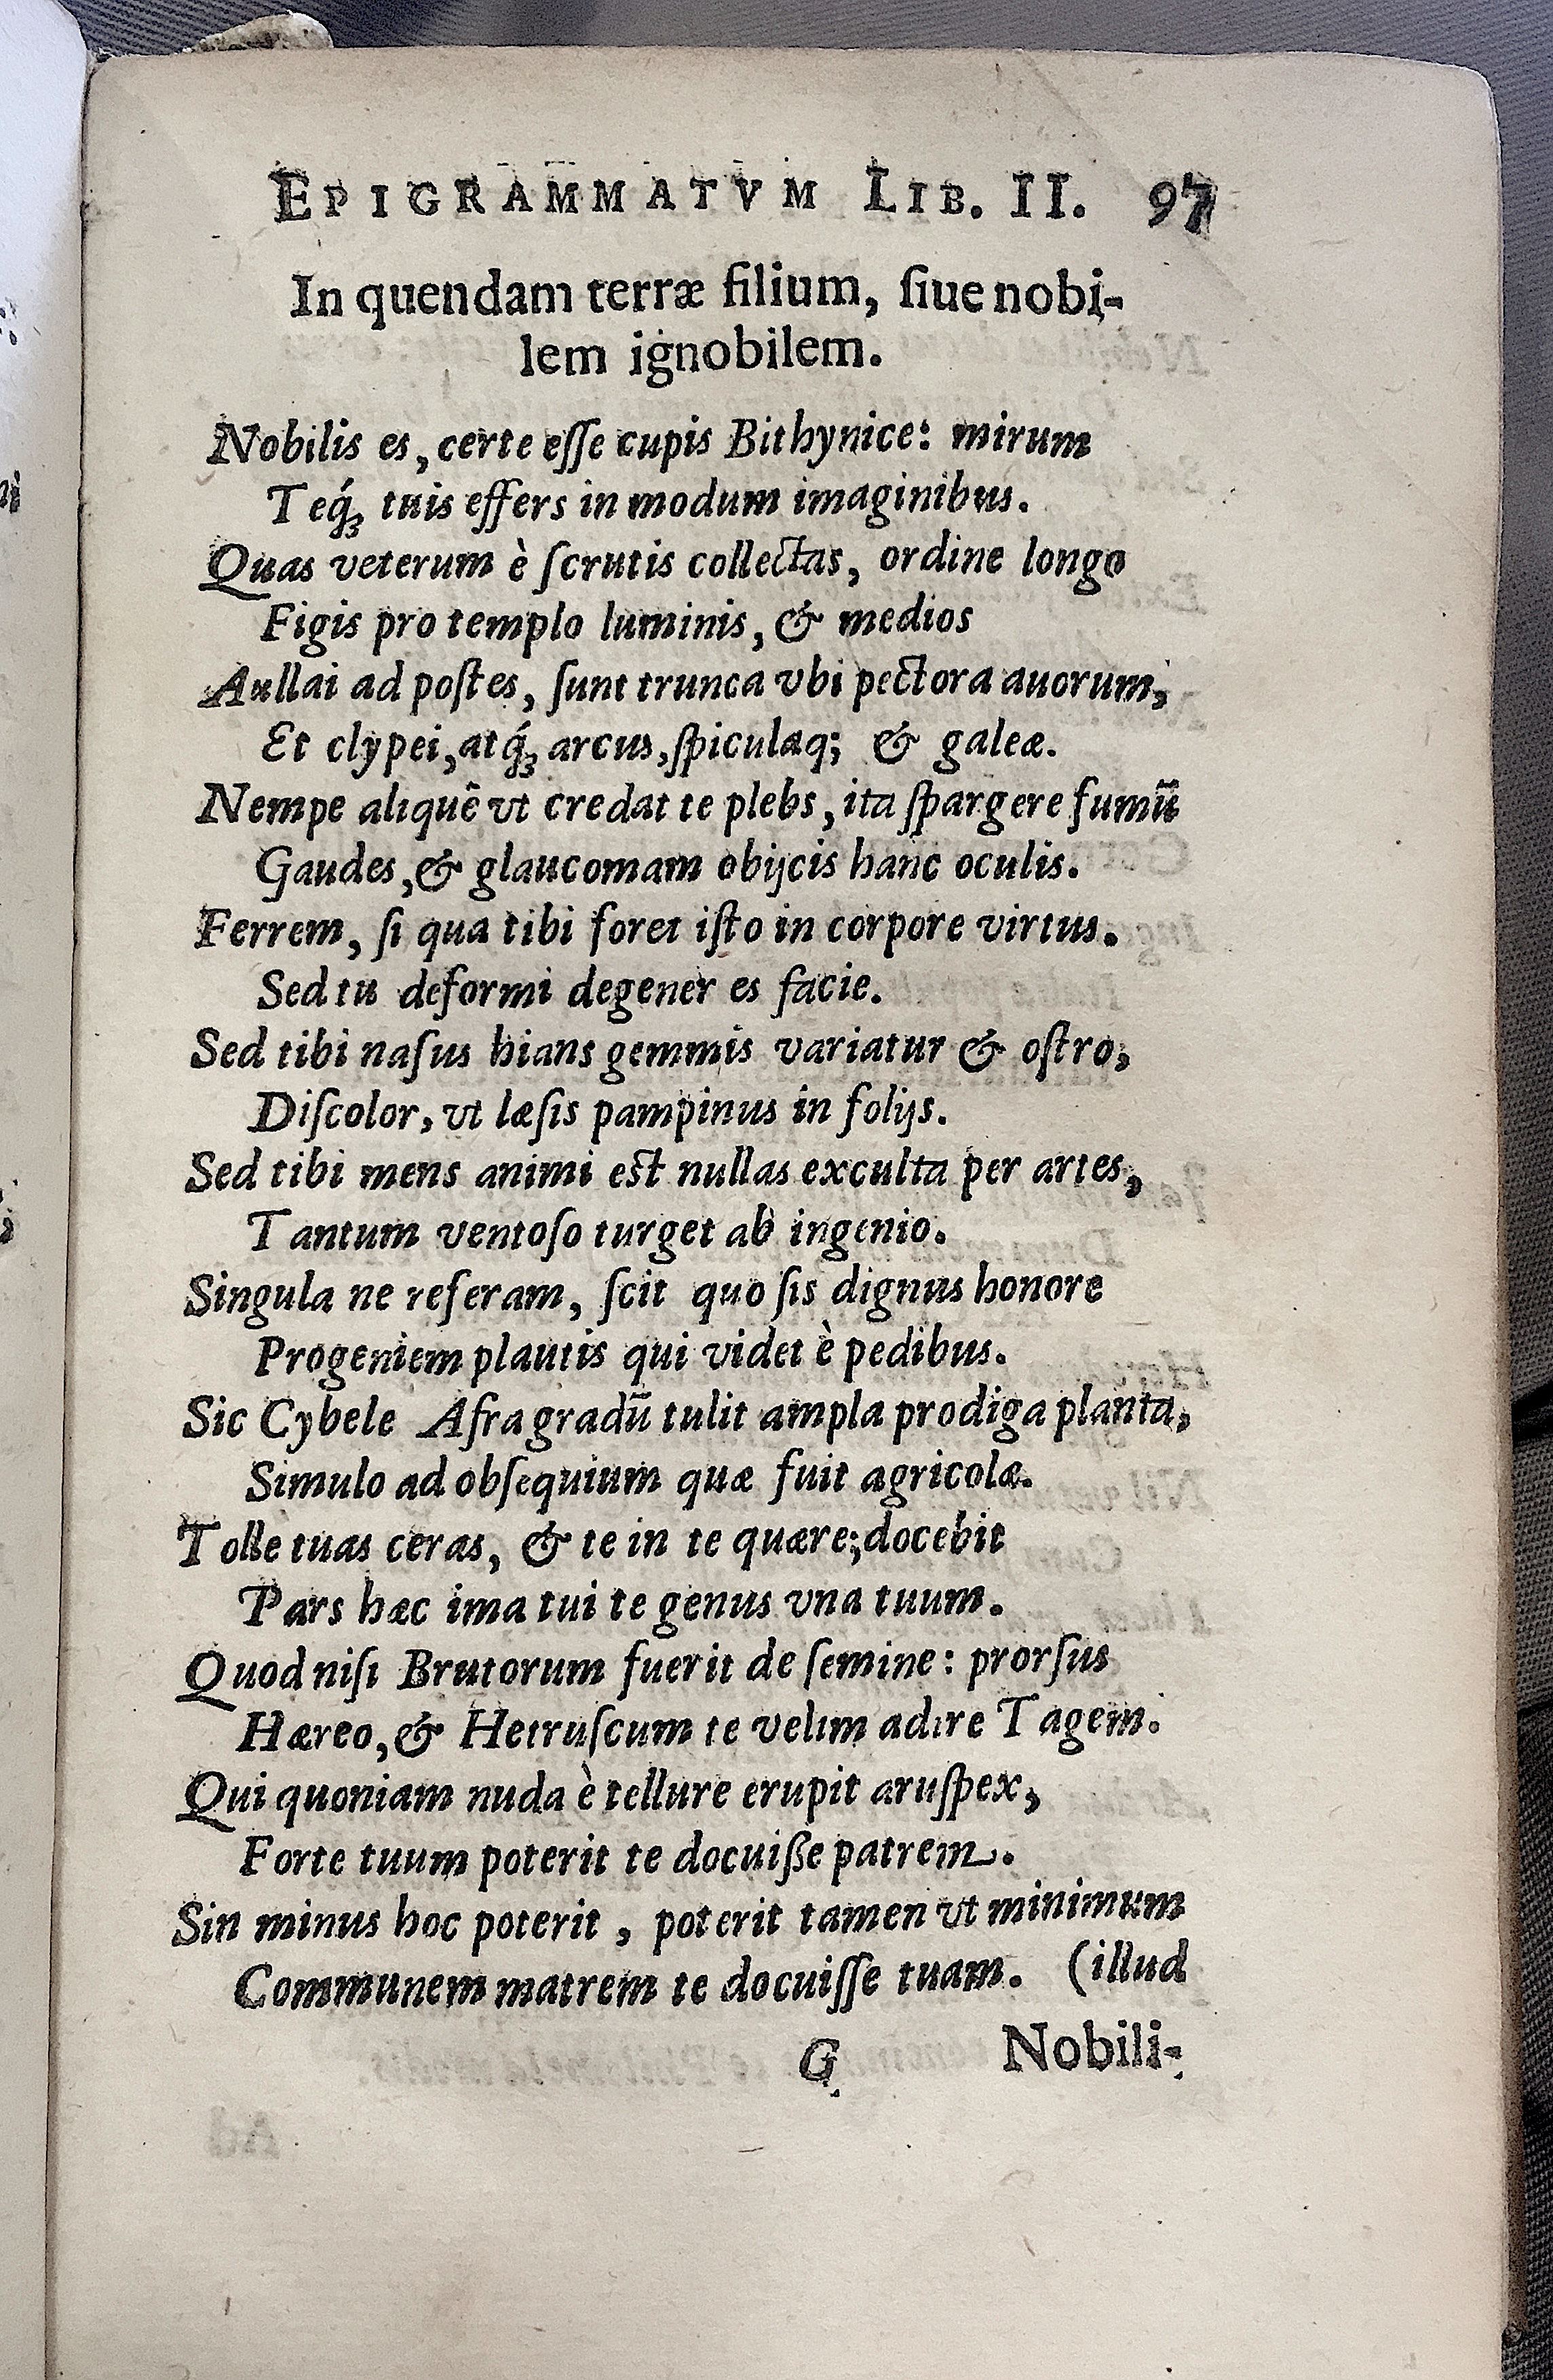 EPIGRAMMATVM LIB. II. 97
In quendam terræ filium, ſiue nobi-
lem ignobilem.
Nobilis es, certe eſſe cupis Bithynice: mirum
Teq́ꝫ tuis effers in modum imaginibus.
Quas veterum è ſcrutis collectas, ordine longo
Figis pro templo luminis, & medios
Aullai ad poſtes, ſunt trunca vbi pectora auorum,
Et clypei, atq́ꝫ arcus, ſpiculaq; & galeæ.
Nempe aliquē vt credat te plebs, ita ſpargere fumū
Gaudes, & glaucomam obijcis hanc oculis.
Ferrem, ſi qua tibi foret iſto in corpore virtus.
Sed tu deformi degener es facie.
Sed tibi naſus hians gemmis variatur & oſtro,
Diſcolor, vt læſis pampinus in folijs.
Sed tibi mens animi eſt nullas exculta per artes,
Tantum ventoſo turget ab ingenio.
Singula ne referam, ſcit quo ſis dignus honore
Progeniem plautis qui videt è pedibus.
Sic Cybele Afra gradū tulit ampla prodiga planta,
Simulo ad obſequium quæ fuit agricolæ.
Tolle tuas ceras, & te in te quære; docebit
Pars hæc ima tui te genus vna tuum.
Quod niſi Brutorum fuerit de ſemine: prorſus
Hæreo, & Hetruſcum te velim adire Tagem.
Qui quoniam nuda è tellure erupit aruſpex,
Forte tuum poterit te docuiße patrem.
Sin minus hoc poterit, poterit tamen vt minimum
Communem matrem te docuiſſe tuam. (illud
G Nobili-